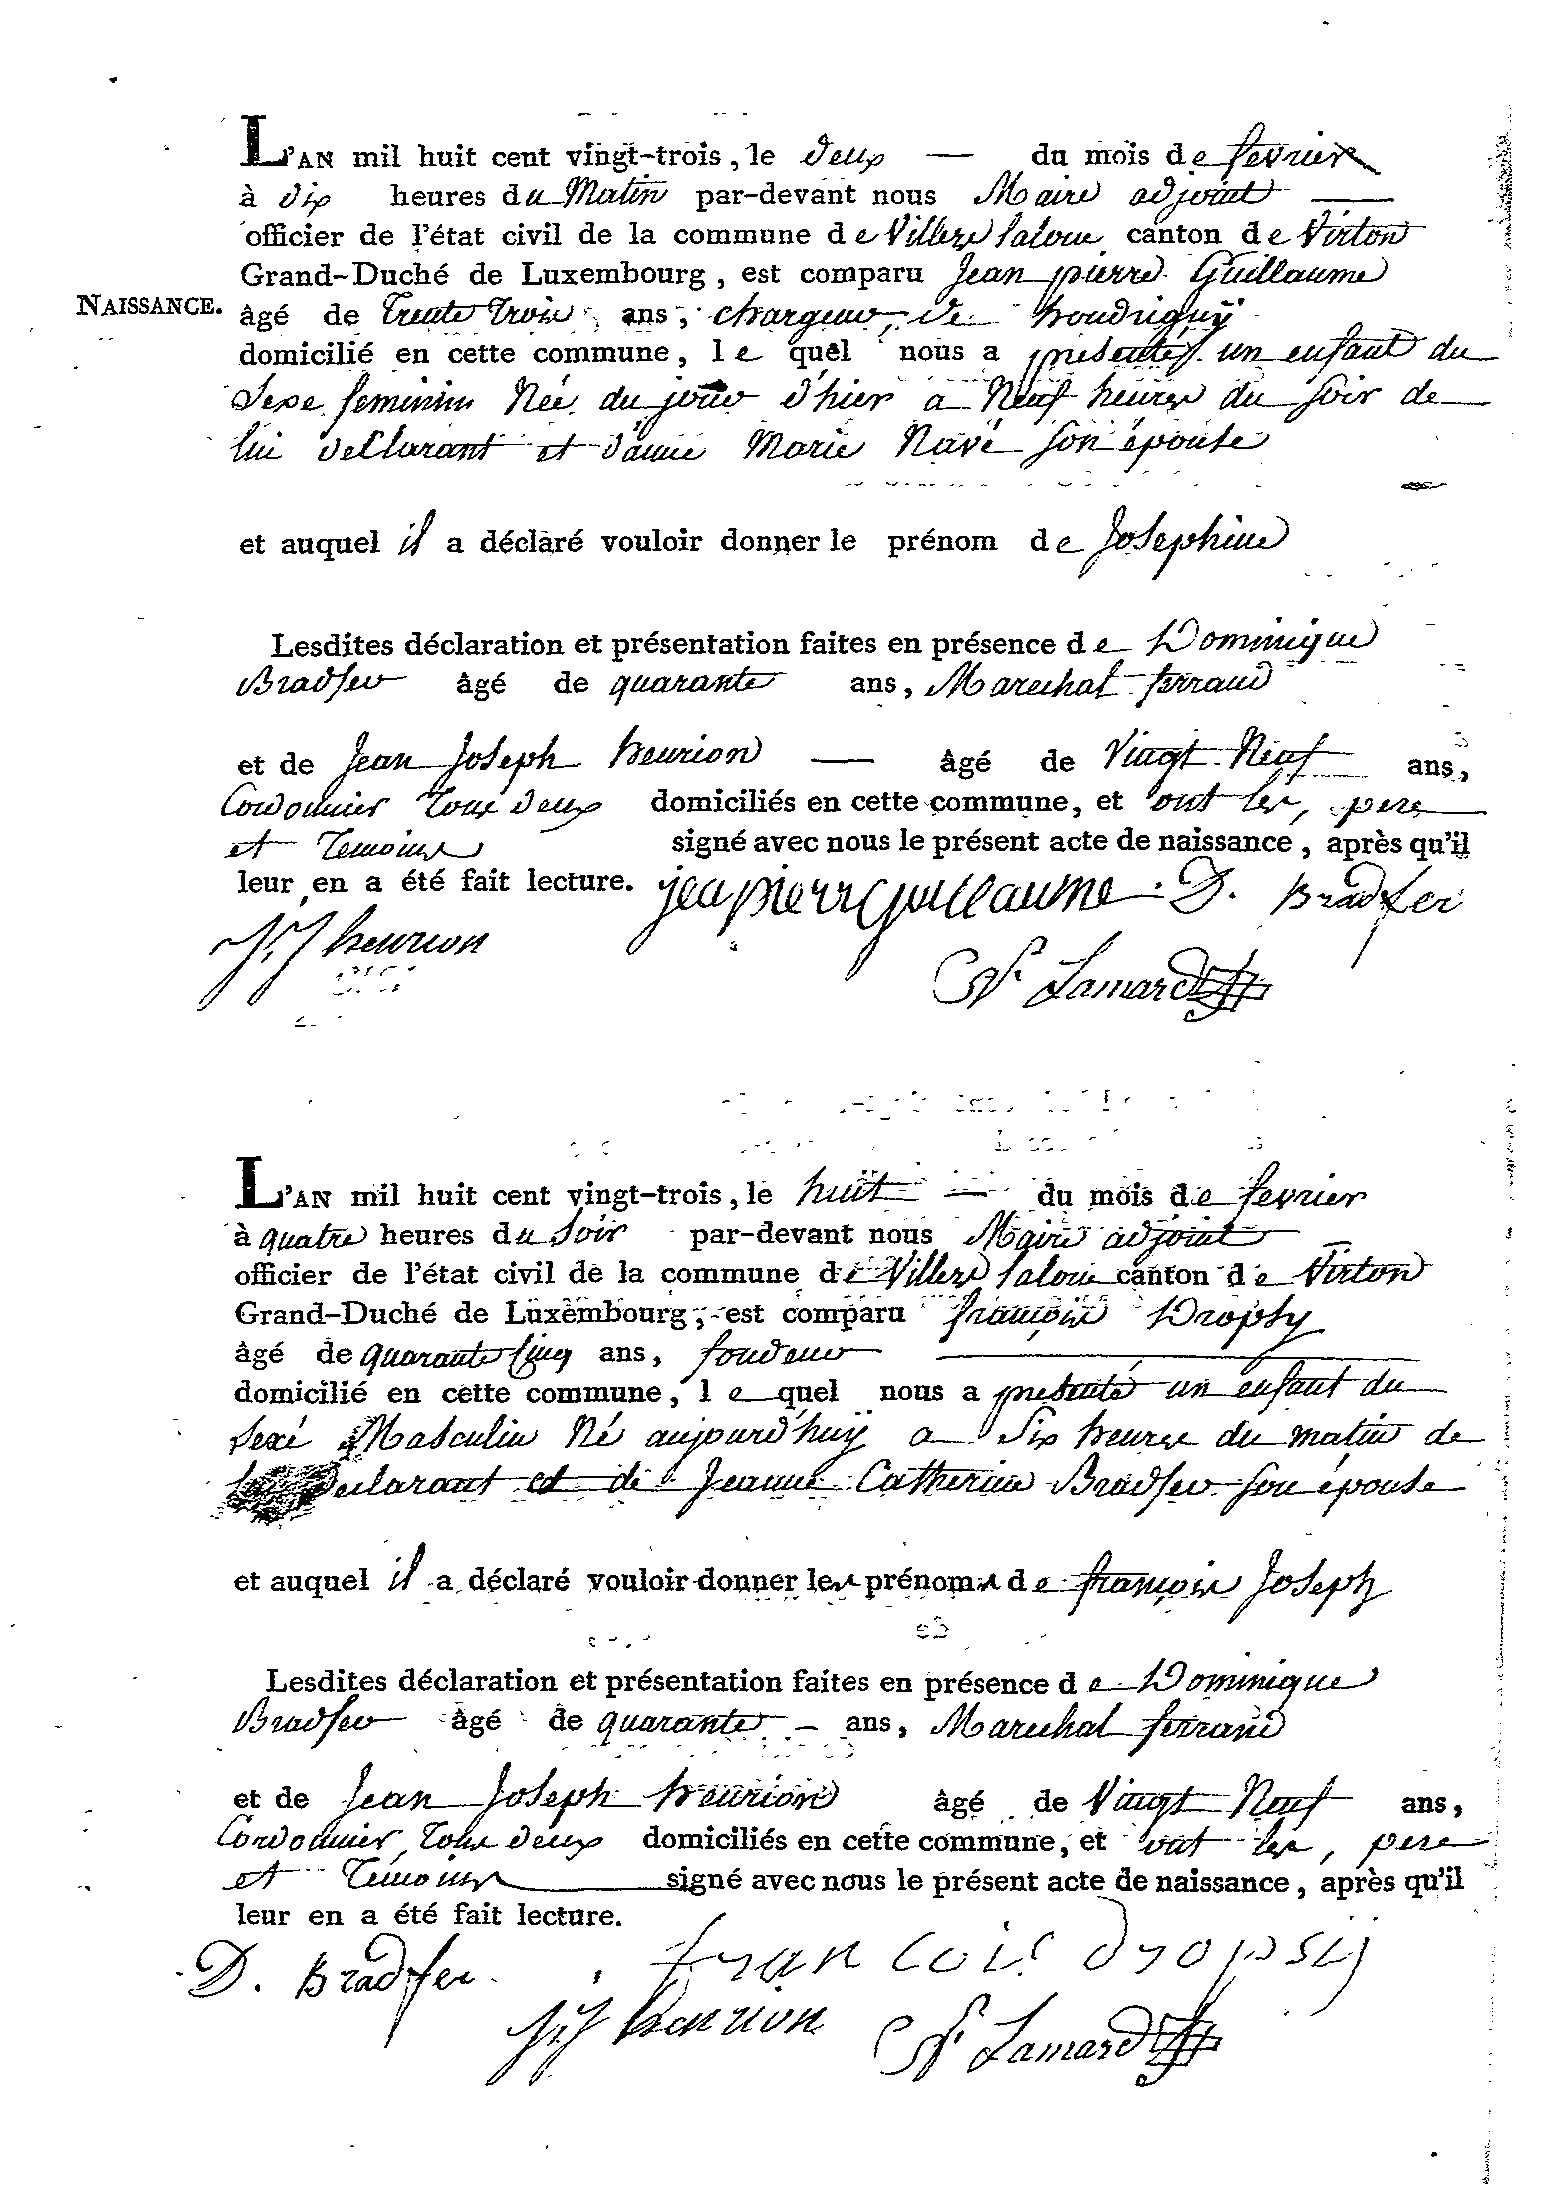 L'AN mil huit cent vingt-trois, le deux — du mois de fevrier
à dix heures du Matin par-devant nous Maire adjoint
officier de l'état civil de la commune de Villers laloue canton de Virton
Grand-Duché de Luxembourg, est comparu Jean pierre Guillaume
NAISSANCE.
âgé de trente trois ans, chargeur, de houdrignÿ
domicilié en cette commune, le quel nous a presentes un enfant du
Sexe feminin Née du jour d'hier a Neuf heures du soir de
lui declarant et d'anne Marie Navé son épouse
et auquel il a déclaré vouloir donner le prénom de Josephine
Lesdites déclaration et présentation faites en présence de Dominique
Bradfer âgé de quarante ans, Marechal ferrand
et de Jean Joseph henrion — âgé de Vingt Neuf ans,
Cordonnier tous deux domiciliés en cette commune, et ont les, pere
et temoins signé avec nous le présent acte de naissance, après qu'il
leur en a été fait lecture. jeapierrGuillaume. D. Bradfer
J. J henrion
Lamard
L'AN mil huit cent vingt-trois, le huït — du mois de fevrier
à quatre heures du Soir par-devant nous Maire adjoint
officier de l'état civil de la commune de Villers laloue canton de Virton
Grand-Duché de Luxembourg, est comparu françois Dropsy
âgé de quarante cinq ans, fondeur
domicilié en cette commune, le quel nous a presenté un enfant du
sexé Masculin Né aujourd'huÿ a Six heures du matin de
declarant et de Jeanne Catherine Bradfer son épouse
et auquel il a déclaré vouloir donner les prénoms de françois Joseph
Lesdites déclaration et présentation faites en présence de Dominique
Bradfer âgé de quarante — ans, Marechal ferrand
et de Jean Joseph henrion âgé de Vingt Neuf ans,
Cordonnier, tous deux domiciliés en cette commune, et ont les, pere
et Temoins signé avec nous le présent acte de naissance, après qu'il
leur en a été fait lecture.
D. Bradfer francois dropsij
J. J henrion Lamard